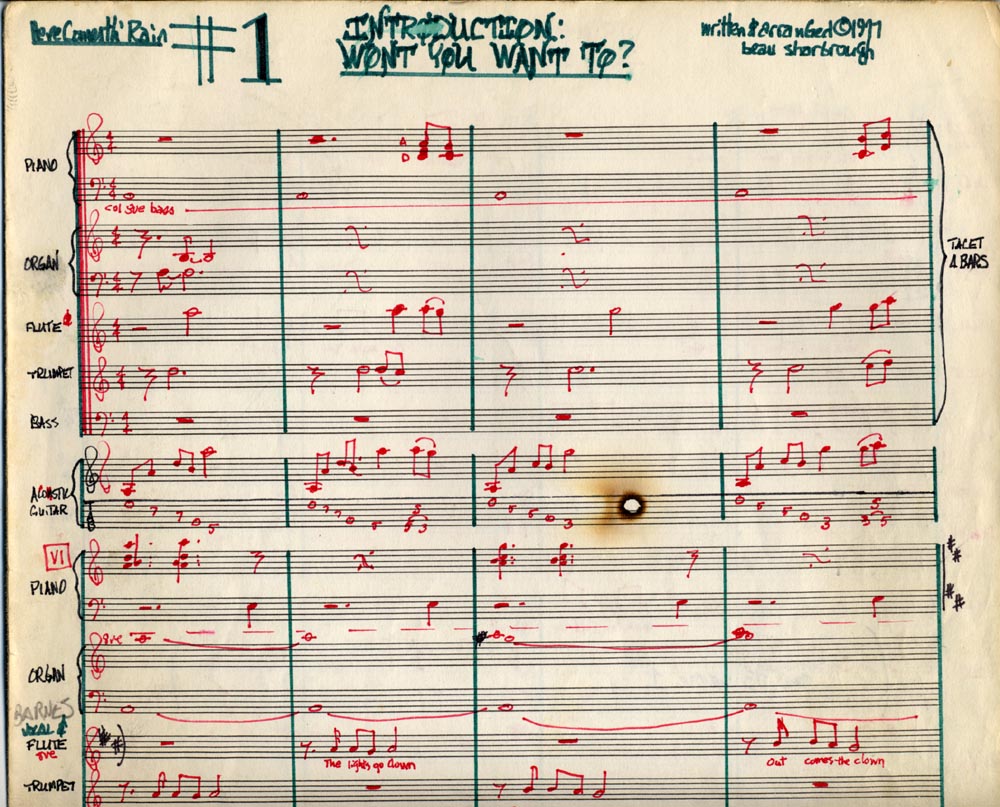 Here Cometh Rain
#1
INTRODUCTION:
WONT YOU WANT TO?
written & arranged © 1977
beau sharbrough
PIANO
A
D
col 8ve bass
ORGAN
FLUTE
TRUMPET
BASS
TACET
4 BARS
ACOUSTIC
GUITAR
T
A
B
0 7 7 0 5
0 7 7 0 5 5 3
0 5 5 0 3
0 5 5 0 3 5 3 5
V1
PIANO
8ve
ORGAN
BARNES
VOCAL &
FLUTE
8ve
The lights go down
Out comes the clown
TRUMPET